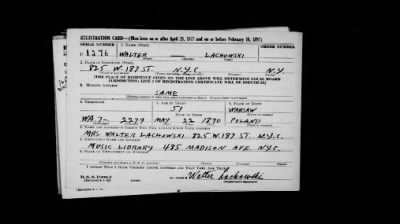 REGISTRATION CARD—(Men born on or after April 28, 1877 and on or before February 16, 1897)
SERIAL NUMBER 1. Name (Print) ORDER NUMBER
1276 WALTER — LACHOWSKI
2. Place of Residence (Print)
825 W. 187 ST. N.Y.C. N.Y.
[THE PLACE OF RESIDENCE GIVEN ON THE LINE ABOVE WILL DETERMINE LOCAL BOARD
JURISDICTION; LINE 2 OF REGISTRATION CERTIFICATE WILL BE IDENTICAL]
3. Mailing Address
SAME
4. Telephone 5. Age in Years 6. Place of Birth
51 WARSAW
WA.7- 2279 MAY 22 1890 POLAND
7. Name and Address of Person Who Will Always Know Your Address
MRS. WALTER LACHOWSKI 825 W. 187 ST. N.Y.C.
8. Employer's Name and Address
MUSIC LIBRARY 485 MADISON AVE. N.Y.C.
9. Place of Employment or Business
I Affirm That I Have Verified Above Answers and That They Are True.
D. S. S. Form 1
Walter Lachowski